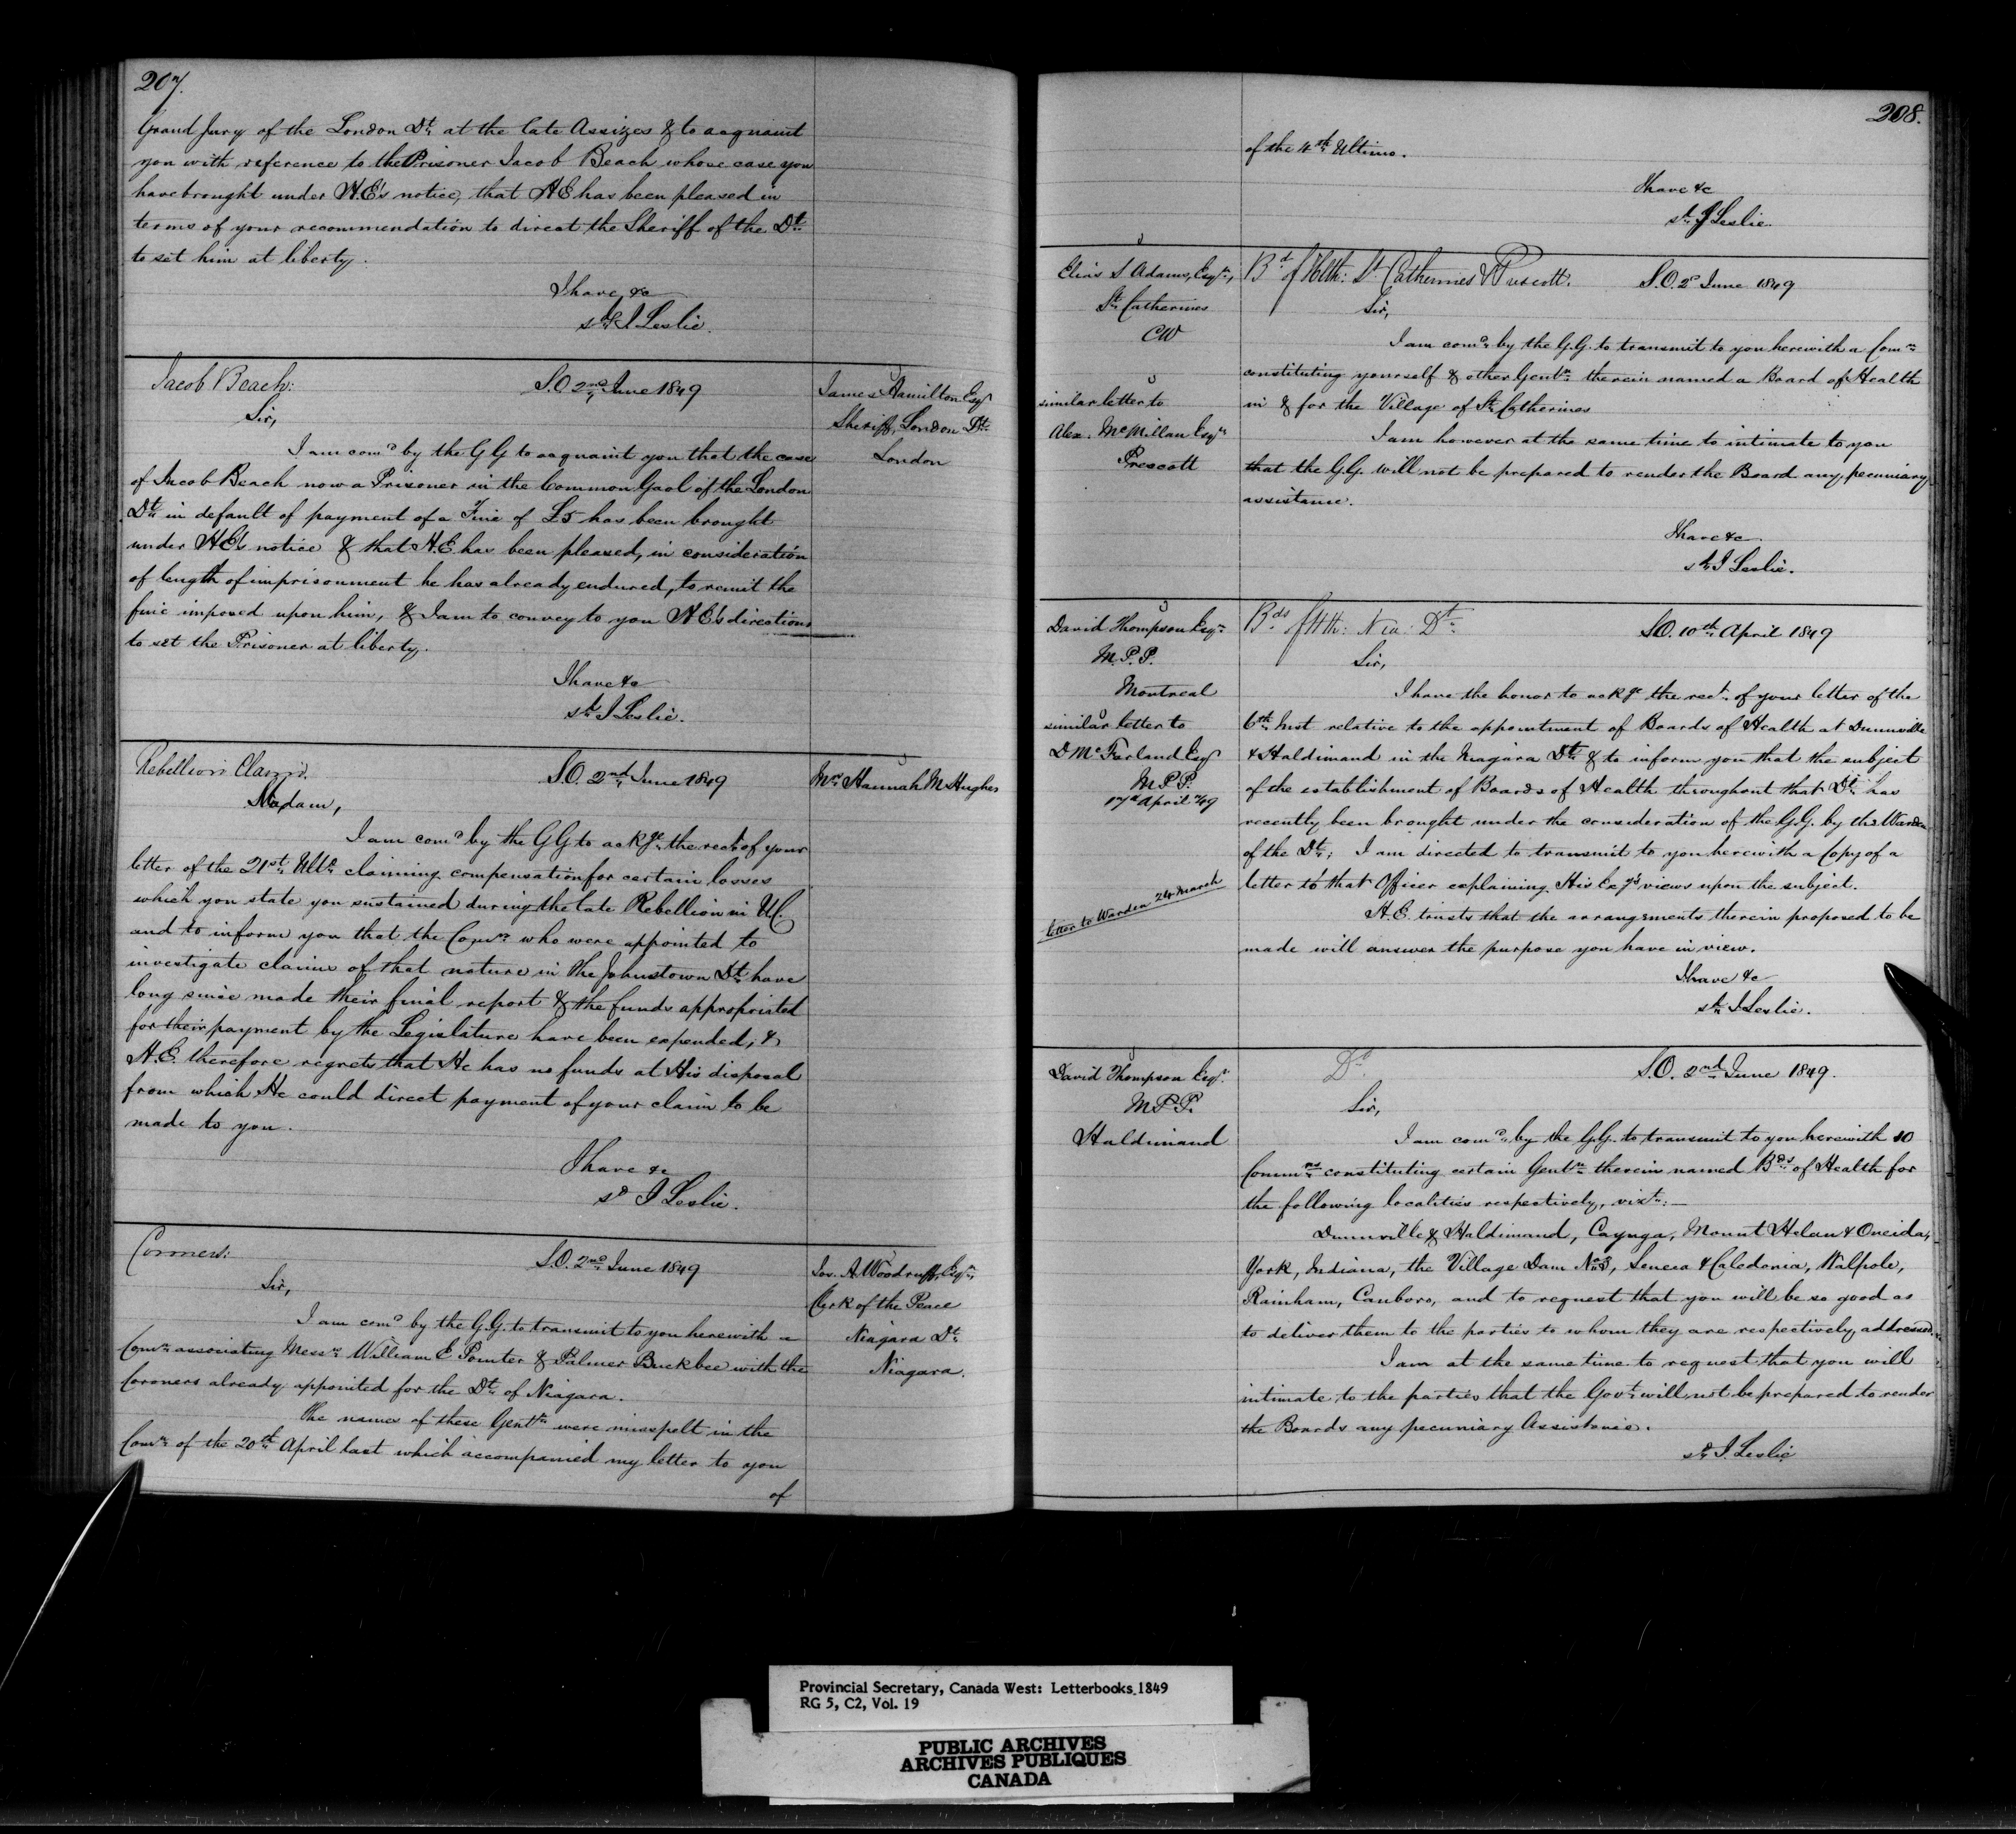 207.
Grand Jury of the London Dt. at the late Assizes & to acquaint
you with reference to the Prisoner Jacob Beach whose case you
have brought under H.E's notice, that H E has been pleased in
terms of your recommendation to direct the Sheriff of the Dt.
to set him at liberty.
I have &c
sd. J Leslie.
Jacob Beach:
S.O. 2nd June 1849
James Hamilton Esqr
Sheriff, London Dt.
London
Sir,
I am comd by the G G to acquaint you that the case
of Jacob Beach now a Prisoner in the Common Gaol of the London
Dt. in default of payment of a Fine of £5 has been brought
under HE's notice & that H.E has been pleased, in consideration
of length of imprisonment he has already endured, to remit the
fine imposed upon him, & I am to convey to you H E's directions
to set the Prisoner at liberty.
I have &c
sd. J Leslie.
Rebellion Claims.
S.O. 2nd June 1849
Mrs Hannah McHughes
Madam,
I am comd by the G G to ackge. the rect of your
letter of the 21st. Ulto. claiming compensation for certain losses
which you state you sustained during the late Rebellion in UC.
and to inform you that the Comrs. who were appointed to
investigate claims of that nature in the Johnstown Dt. have
long since made their final report & the funds appropriated
for their payment by the Legislature have been expended, &
H.E. therefore regrets that He has no funds at His disposal
from which He could direct payment of your claim to be
made to you.
I have &c
sd J Leslie.
Coroners:
S.O. 2nd June 1849
Jos. A. Woodruff, Esqr.,
Clerk of the Peace
Niagara Dt.
Niagara.
Sir,
I am comd by the G.G. to transmit to you herewith a
Comn. associating Messrs. William E Pointer & Palmer Buckbee with the
Coroners already appointed for the Dt. of Niagara.
The names of these Gentn. were misspelt in the
Comn. of the 20th. April last which accompanied my letter to you
of
208.
of the 4th. Ultimo.
I have &c
sd. J Leslie.
Elias S Adams, Esqr.,
St. Catherines
CW
similar letter to
Alex. McMillan Esqr.
Prescott
Bd. of Hlth: St. Catherines & Prescott.
S.O. 2d June 1849
Sir,
I am comd. by the G.G. to transmit to you herewith a Comn.
constituting yourself & other Gentn. therein named a Board of Health
in & for the Village of St. Catherines
I am however at the same time to intimate to you
that the G.G. will not be prepared to render the Board any pecuniary
assistance.
I have &c
sd. J Leslie.
David Thompson Esqr.
M.P.P.
Montreal
similar letter to
D McFarland Esqr
M P P.
17th April /49
letter to Warden 24 March
Bds. of Hlth: Nia: Dt.
S.O. 10th. April 1849
Sir,
I have the honor to ackge the rect. of your letter of the
6th. Inst relative to the appointment of Boards of Health at Dunnville
& Haldimand in the Niagara Dt. & to inform you that the subject
of the establishment of Boards of Health throughout that Dt. has
recently been brought under the consideration of the G.G. by the Warden
of the Dt.; I am directed to transmit to you herewith a Copy of a
letter to that Officer explaining His Exy's views upon the subject.
H.E. trusts that the arrangements therein proposed to be
made will answer the purpose you have in view.
I have &c
sd. J Leslie.
David Thompson Esqr.
M P P.
Haldimand
Do
S.O. 2nd June 1849.
Sir,
I am comd. by the G.G. to transmit to you herewith 10
Commns. constituting certain Gentn. therein named Bds. of Health for
the following localities respectively, vizt.:—
Dunnville & Haldimand, Cayuga, Mount Helen & Oneida,
York, Indiana, the Village Dam No. 5, Seneca & Caledonia, Walpole,
Rainham, Canboro, and to request that you will be so good as
to deliver them to the parties to whom they are respectively addressed.
I am at the same time to request that you will
intimate to the parties that the Govt. will not be prepared to render
the Boards any pecuniary Assistance.
sd. J. Leslie
Provincial Secretary, Canada West: Letterbooks 1849
RG 5, C2, Vol. 19
PUBLIC ARCHIVES
ARCHIVES PUBLIQUES
CANADA